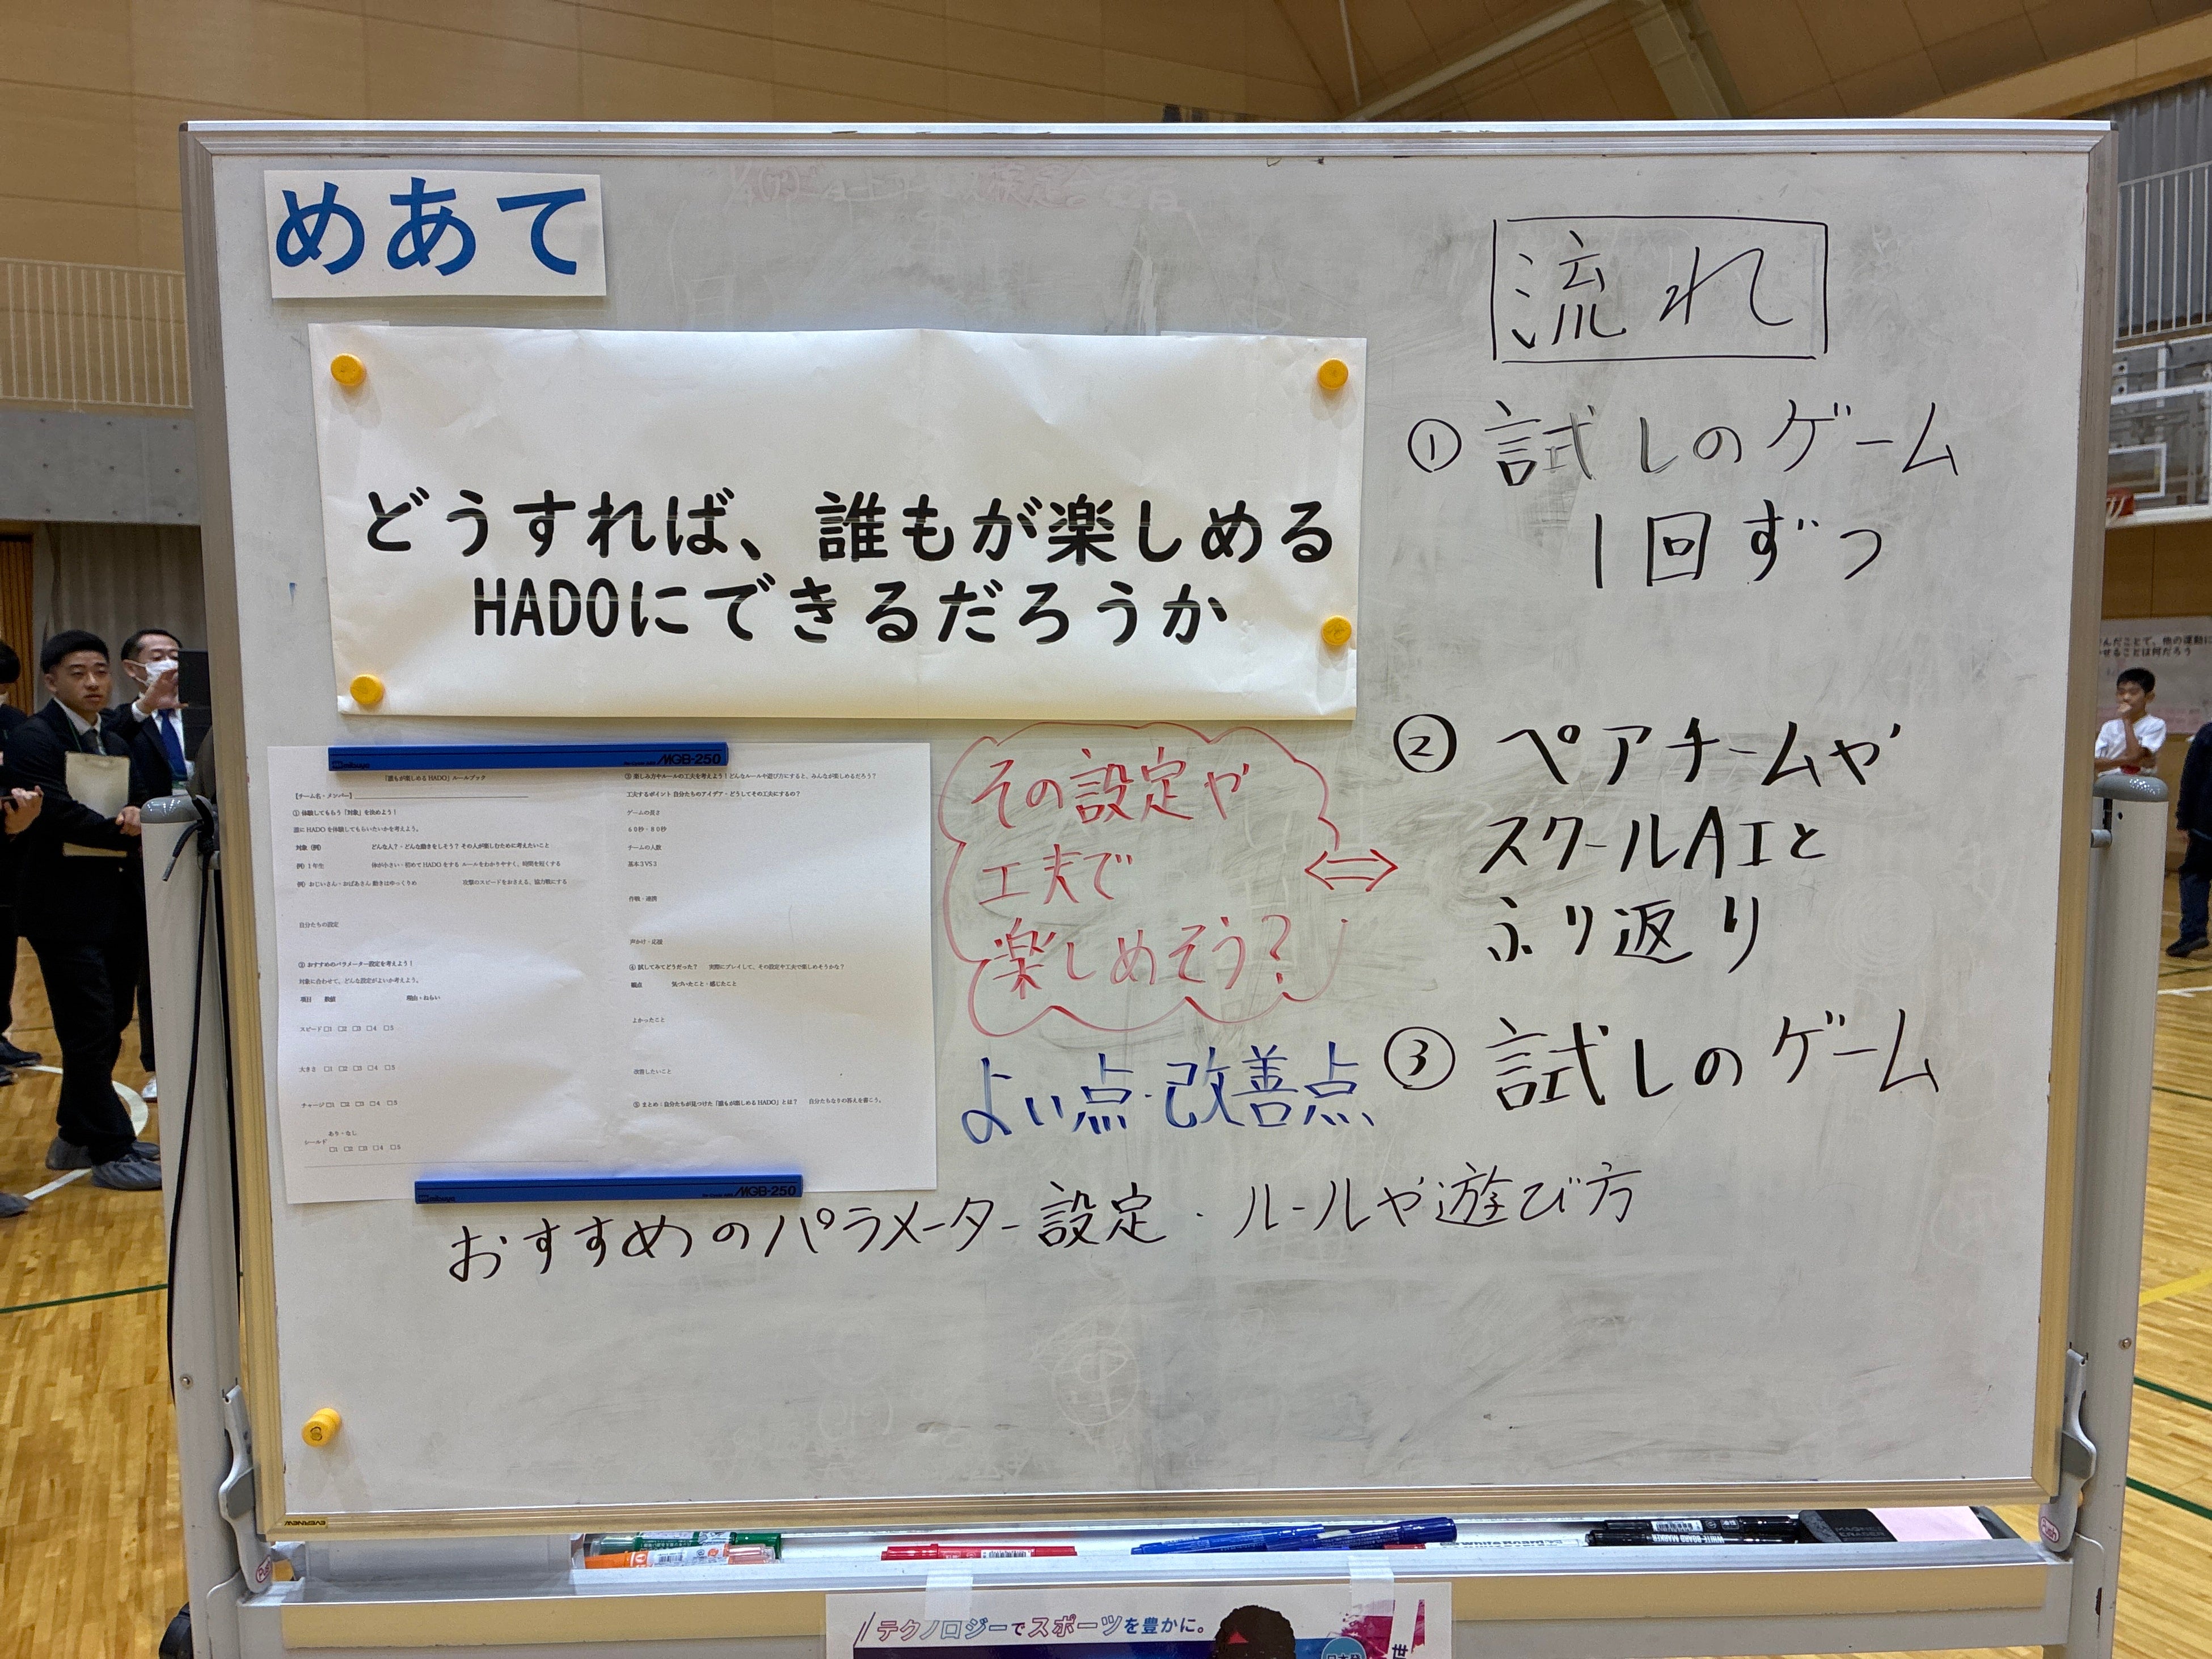 めあて
どうすれば、誰もが楽しめる
HADOにできるだろうか
流れ
① 試しのゲーム
1回ずつ
② ペアチームや
スクールAIと
ふり返り
③ 試しのゲーム
その設定や
工夫で
楽しめそう?
よい点・改善点
おすすめのパラメーター設定・ルールや遊び方
MGB-250
「誰もが楽しめるHADO」ルールブック
【チーム名・メンバー】
① 体験してもらう「対象」を決めよう！
誰にHADOを体験してもらいたいかを考えよう。
対象（例） どんな人？・どんな動きをしそう？ その人が楽しむために考えたいこと
例）1年生 体が小さい・初めてHADOをする ルールをわかりやすく、時間を短くする
例）おじいさん・おばあさん 動きはゆっくりめ 攻撃のスピードをおさえる、協力戦にする
自分たちの設定
② おすすめのパラメーター設定を考えよう！
対象に合わせて、どんな設定がよいか考えよう。
項目 数値 理由・ねらい
スピード □1 □2 □3 □4 □5
大きさ □1 □2 □3 □4 □5
チャージ □1 □2 □3 □4 □5
あり・なし
シールド □1 □2 □3 □4 □5
③ 楽しみ方やルールの工夫を考えよう！どんなルールや遊び方にすると、みんなが楽しめるだろう？
工夫するポイント 自分たちのアイデア・どうしてその工夫にするの？
ゲームの長さ
60秒・80秒
チームの人数
基本3VS3
作戦・連携
声かけ・応援
④ 試してみてどうだった？ 実際にプレイして、その設定や工夫で楽しめそうかな？
観点 気づいたこと・感じたこと
よかったこと
改善したいこと
⑤ まとめ：自分たちが見つけた「誰もが楽しめるHADO」とは？ 自分たちなりの答えを書こう。
MGB-250
テクノロジーでスポーツを豊かに。
んだことで、他の運動に
せることは何だろう
Push
Push